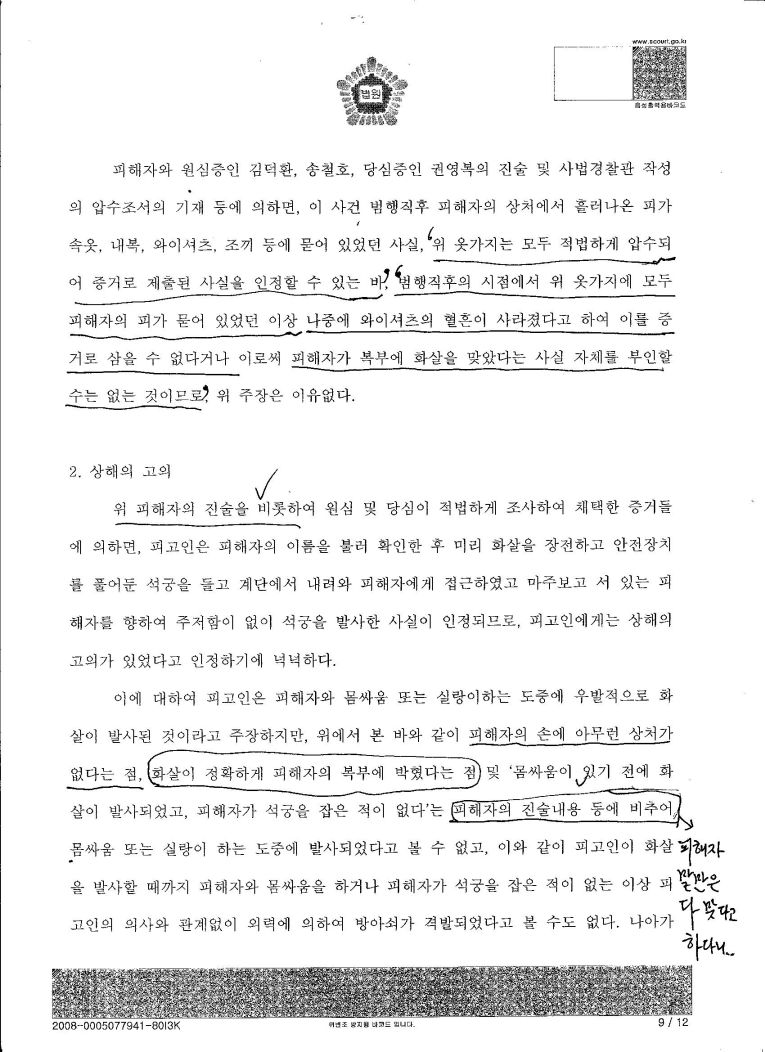 www.scourt.go.kr
법원
음성출력용바코드
피해자와 원심증인 김덕환, 송철호, 당심증인 권영복의 진술 및 사법경찰관 작성
의 압수조서의 기재 등에 의하면, 이 사건 범행직후 피해자의 상처에서 흘러나온 피가
속옷, 내복, 와이셔츠, 조끼 등에 묻어 있었던 사실, 위 옷가지는 모두 적법하게 압수되
어 증거로 제출된 사실을 인정할 수 있는 바, 범행직후의 시점에서 위 옷가지에 모두
피해자의 피가 묻어 있었던 이상 나중에 와이셔츠의 혈흔이 사라졌다고 하여 이를 증
거로 삼을 수 없다거나 이로써 피해자가 복부에 화살을 맞았다는 사실 자체를 부인할
수는 없는 것이므로, 위 주장은 이유없다.
2. 상해의 고의
위 피해자의 진술을 비롯하여 원심 및 당심이 적법하게 조사하여 채택한 증거들
에 의하면, 피고인은 피해자의 이름을 불러 확인한 후 미리 화살을 장전하고 안전장치
를 풀어둔 석궁을 들고 계단에서 내려와 피해자에게 접근하였고 마주보고 서 있는 피
해자를 향하여 주저함이 없이 석궁을 발사한 사실이 인정되므로, 피고인에게는 상해의
고의가 있었다고 인정하기에 넉넉하다.
이에 대하여 피고인은 피해자와 몸싸움 또는 실랑이하는 도중에 우발적으로 화
살이 발사된 것이라고 주장하지만, 위에서 본 바와 같이 피해자의 손에 아무런 상처가
없다는 점, 화살이 정확하게 피해자의 복부에 박혔다는 점 및 '몸싸움이 있기 전에 화
살이 발사되었고, 피해자가 석궁을 잡은 적이 없다'는 피해자의 진술내용 등에 비추어
몸싸움 또는 실랑이 하는 도중에 발사되었다고 볼 수 없고, 이와 같이 피고인이 화살
을 발사할 때까지 피해자와 몸싸움을 하거나 피해자가 석궁을 잡은 적이 없는 이상 피
고인의 의사와 관계없이 외력에 의하여 방아쇠가 격발되었다고 볼 수도 없다. 나아가
피해자
말만은
다 맞다고
하다니..
2008-0005077941-80I3K
위변조 방지용 바코드 입니다.
9 / 12